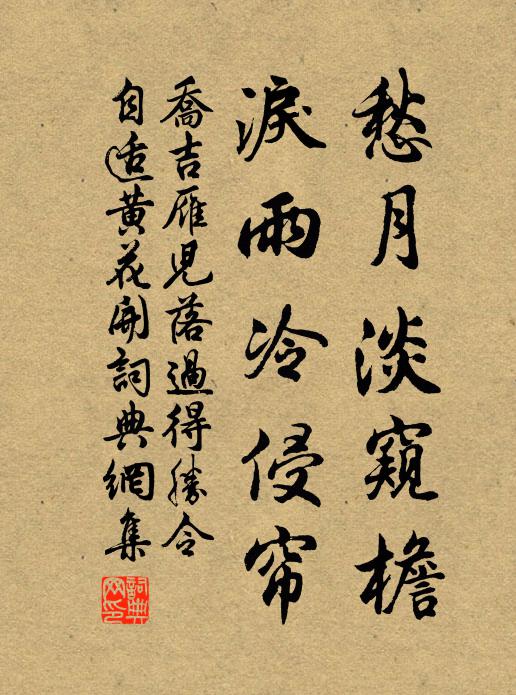 愁月淡窺檐
淚雨冷侵帘
喬吉雁児落過得勝令
自适黄花開詞典網集
詞典网印